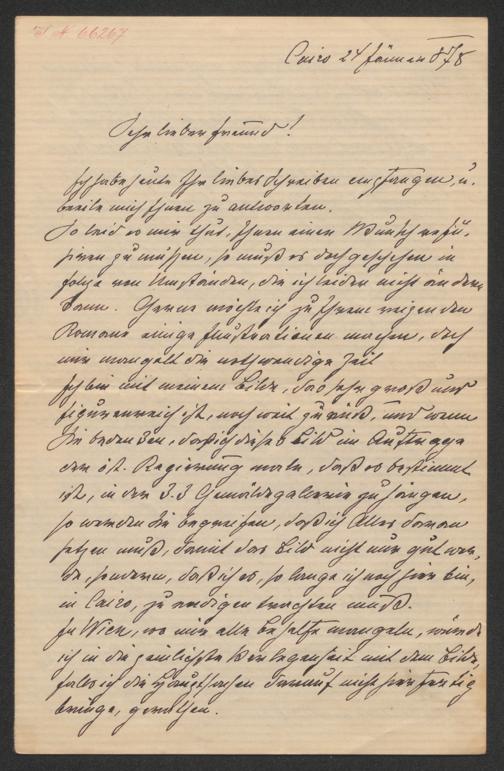 I N 66267
Cairo 24 Jänner 878
Sehr lieber Freund!
Ich habe heute Ihr liebes Schreiben empfangen, u.
beeile mich Ihnen zu antworten.
So leid es mir thut, Ihnen einen Wunsch refü-
siren zu müssen, so muß es doch geschehen in
folge von Umständen, die ich leider nicht ändern
kann. Gerne möchte ich zu Ihrem reizenden
Romane einige Illustrationen machen, doch
mir mangelt die nothwendige Zeit
Ich bin mit meinem Bilde, das sehr groß und
figurenreich ist, noch weit zurück, und wenn
Sie bedenken, daß ich dieses Bild im Auftrage
der öst. Regierung male, daß es bestimmt
ist, in der Gemäldegalerie zu hängen,
so werden Sie begreifen, daß ich Alles daran
setzen muß, damit das Bild nicht nur gut wer-
de, sondern, daß ich es, so lange ich noch hier bin,
in Cairo, zu endigen trachten muß.
In Wien, wo mir alle Behelfe mangeln, würde
ich in die peinlichste Verlegenheit mit dem Bilde,
falls ich die Hauptsachen darauf nicht hier fertig
bringe, gerathen.